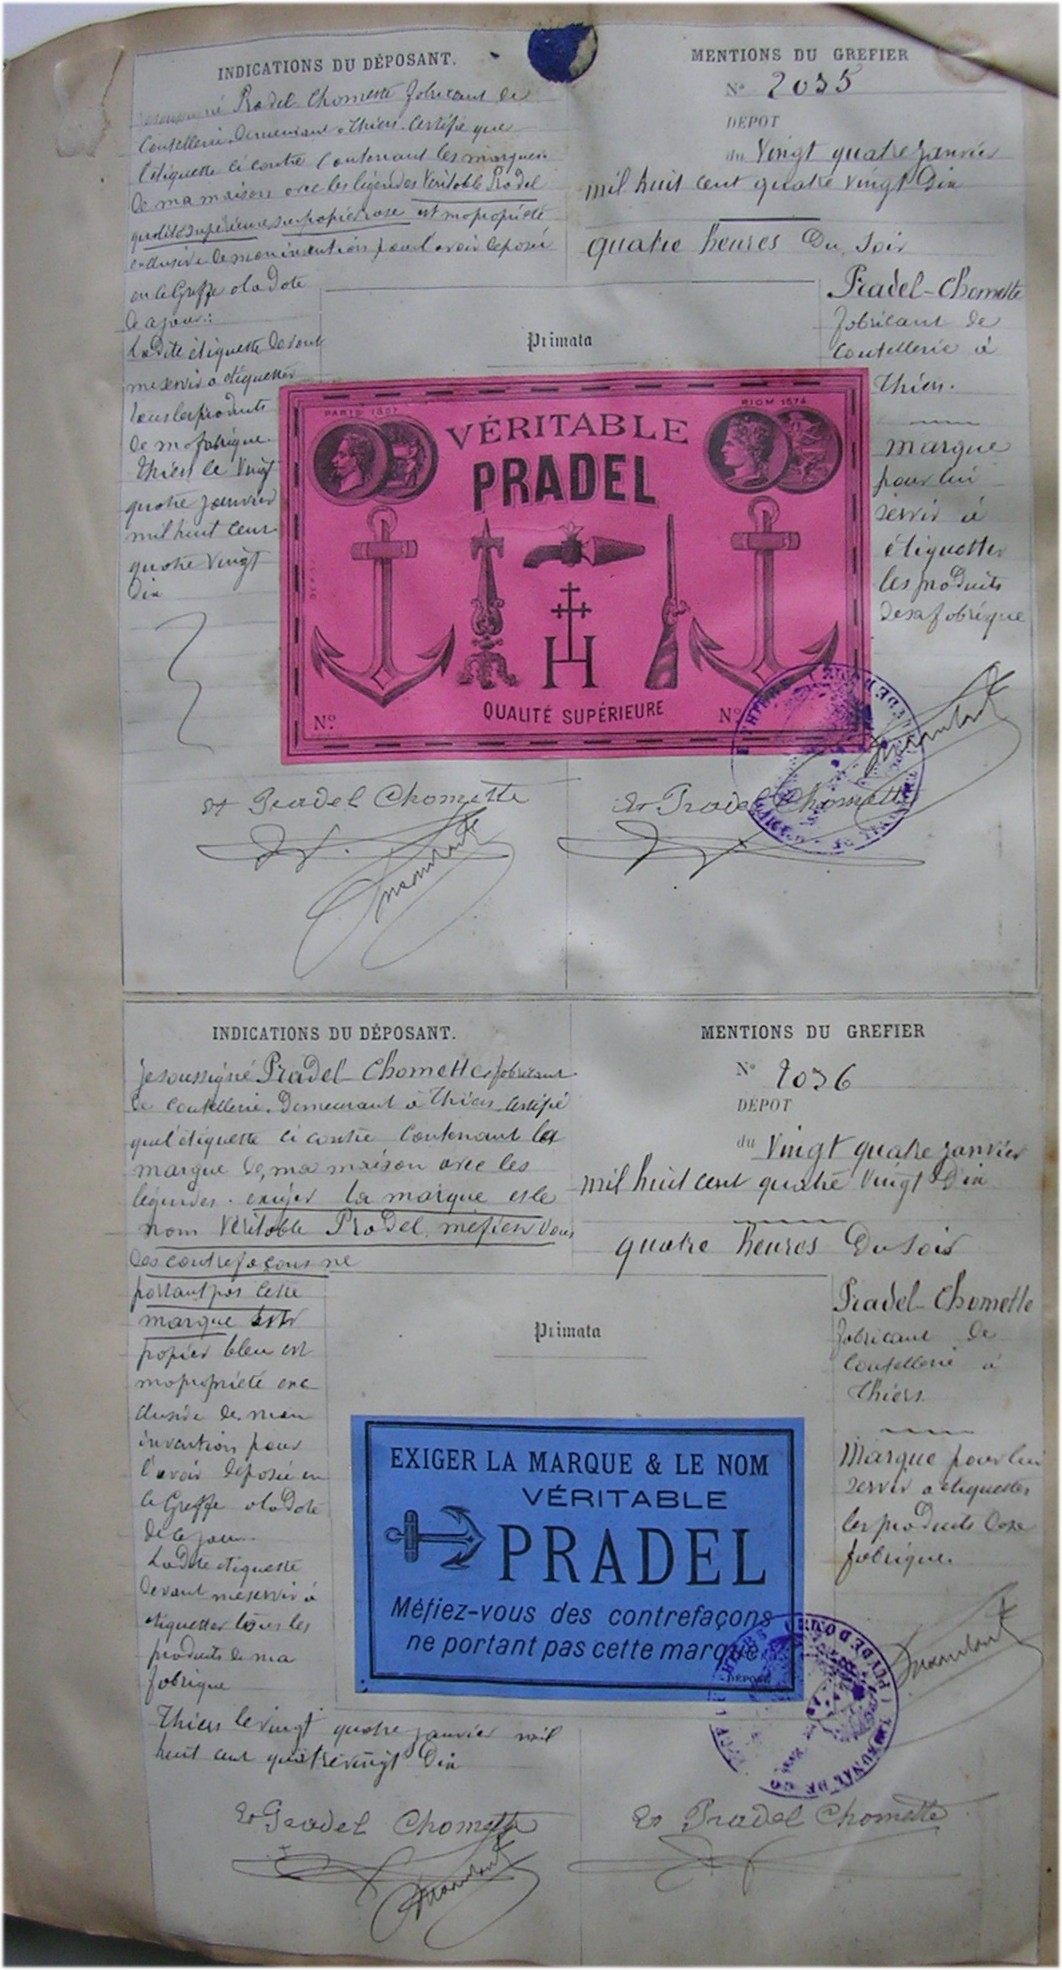 INDICATIONS DU DÉPOSANT.
Pradel Chomette fabricant de
Coutellerie Demeurant a Thiers Certifie que
l'étiquette ci contre Contenant les marques
De ma maison avec les légendes Véritable Pradel
qualité Supérieure sur papier rose est ma propriété
exclusive de mon invention pour l'avoir déposée
au Greffe a la Date
De ce jour:
La Dite étiquette devant
me servir a étiquetter
tous les produits
De ma fabrique
Thiers le Vingt
quatre janvier
mil huit cent
quatre Vingt
Dix
MENTIONS DU GREFIER
N° 2035
DÉPOT
du Vingt quatre janvier
mil huit cent quatre vingt Dix
quatre heures Du Soir
Primata
Pradel-Chomette
fabricant de
Coutellerie à
Thiers.
marque
pour lui
servir à
étiquetter
les produits
de sa fabrique
PARIS 1867
RIOM 1874
VÉRITABLE
PRADEL
H
QUALITÉ SUPÉRIEURE
N°
N°
Pradel Chomette
Pradel Chomette
INDICATIONS DU DÉPOSANT.
Je soussigné Pradel Chomette fabricant
De Coutellerie Demeurant a Thiers Certifie
que l'étiquette ci contre Contenant la
marque de ma maison avec les
légendes exiger la marque et le
nom Véritable Pradel méfiez Vous
Des contrefaçons ne
portant pas Cette
marque sur
papier bleu est
ma propriété exc
clusive de mon
invention pour
l'avoir déposée au
Greffe a la Date
de ce jour.
La Dite etiquette
devant me servir à
etiquetter tous les
produits de ma
fabrique
Thiers le vingt quatre janvier mil
huit cent quatre vingt Dix
MENTIONS DU GREFIER
N° 2036
DÉPOT
du Vingt quatre janvier
mil huit cent quatre Vingt Dix
quatre heures Du Soir
Primata
Pradel-Chomette
fabricant de
Coutellerie à
Thiers.
Marque pour lui
servir a etiquetter
les produits de sa
fabrique.
EXIGER LA MARQUE & LE NOM
VÉRITABLE
PRADEL
Méfiez-vous des contrefaçons
ne portant pas cette marque.
DÉPOSÉ
Pradel Chomette
Pradel Chomette